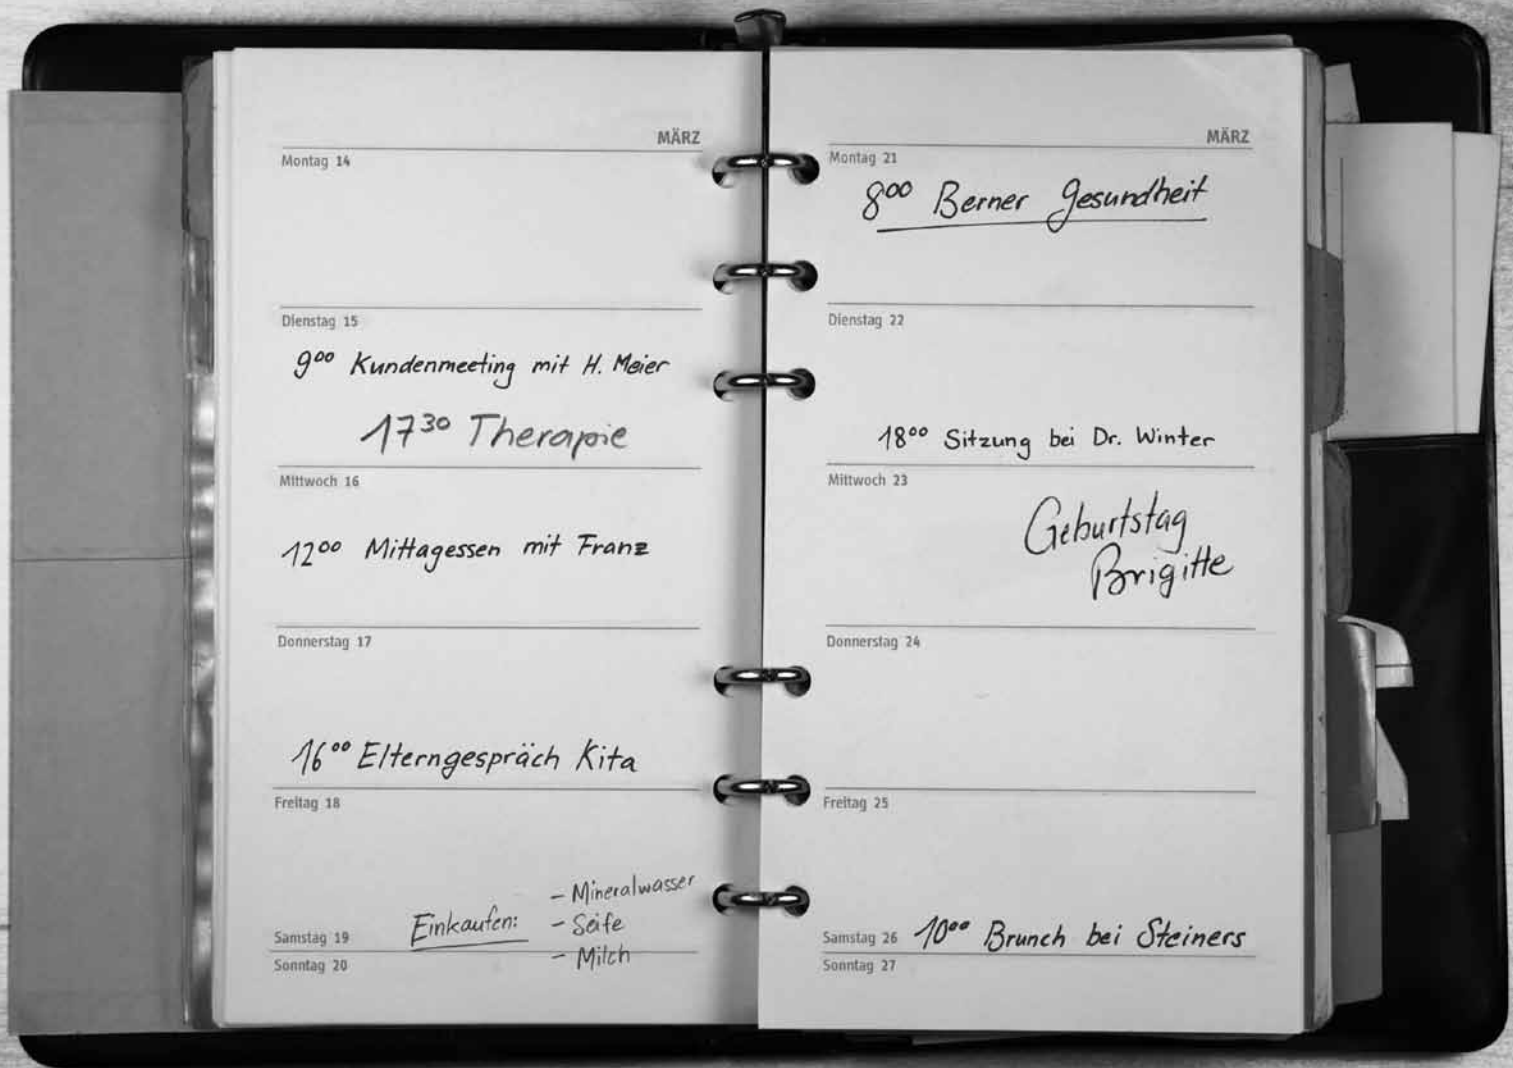 MÄRZ
Montag 14
Dienstag 15
9⁰⁰ Kundenmeeting mit H. Meier
17³⁰ Therapie
Mittwoch 16
12⁰⁰ Mittagessen mit Franz
Donnerstag 17
16⁰⁰ Elterngespräch Kita
Freitag 18
Einkaufen:
- Mineralwasser
- Seife
- Milch
Samstag 19
Sonntag 20
MÄRZ
Montag 21
8⁰⁰ Berner Gesundheit
Dienstag 22
18⁰⁰ Sitzung bei Dr. Winter
Mittwoch 23
Geburtstag
Brigitte
Donnerstag 24
Freitag 25
Samstag 26 10⁰⁰ Brunch bei Steiners
Sonntag 27